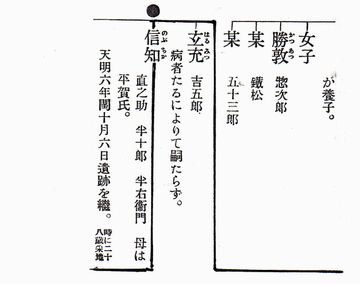 が養子。
女子
勝敦 かつあつ 惣次郎
某 鐵松
某 五十三郎
玄充 はるみつ 吉五郎
病者たるによりて嗣たらず。
信知 のぶちか
直之助 半十郎 半右衛門 母は
平賀氏。
天明六年閏十月六日遺跡を繼。時に二十八歳采地